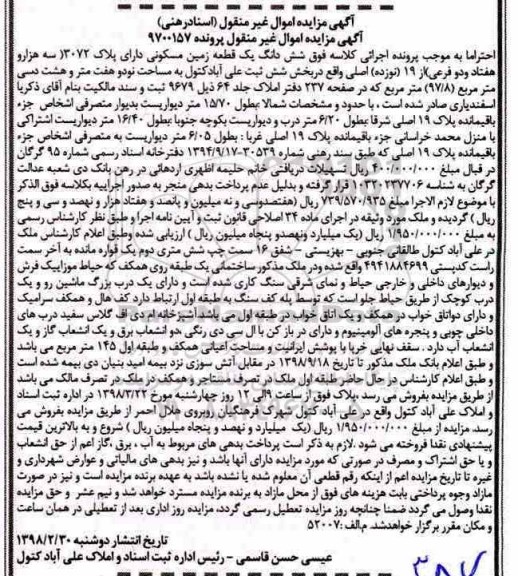 آگهی مزایده اموال غیر منقول (اسنادرهنی)
آگهی مزایده اموال غیر منقول پرونده ۹۷۰۰۱۵۷
احتراما به موجب پرونده اجرائی کلاسه فوق شش دانگ یک قطعه زمین مسکونی دارای پلاک ۳۰۷۲( سه هزارو
هفتاد ودو فرعی)از ۱۹ (نوزده) اصلی واقع دربخش شش ثبت علی آبادکتول به مساحت نودو هفت متر و هشت دسی
متر مربع (۹۷/۸) متر مربع که در صفحه ۲۳۷ دفتر املاک جلد ۶۴ ذیل ۹۶۷۹ ثبت و سند مالکیت بنام آقای ذکریا
اسفندیاری صادر شده است ، با حدود و مشخصات شمالا :بطول ۱۵/۷۰ متر دیواریست بدیوار متصرفی اشخاص جزء
باقیمانده پلاک ۱۹ اصلی شرقا بطول ۶/۲۰ متر درب و دیواریست بکوچه جنوبا بطول ۱۶/۴۰ متر دیواریست اشتراکی
با منزل محمد خراسانی جزء باقیمانده پلاک ۱۹ اصلی غربا : بطول ۶/۰۵ متر دیواریست به متصرفی اشخاص جزء
باقیمانده پلاک ۱۹ اصلی که طبق سند رهنی شماره ۳۰۵۳۹-۱۳۹۴/۹/۱۷ دفترخانه اسناد رسمی شماره ۹۵ گرگان
در قبال مبلغ ۴۰۰/۰۰۰/۰۰۰ ریال تسهیلات دریافتی خانم حلیمه اظهری اردهائی در رهن بانک دی شعبه عدالت
گرگان به شناسه ۱۰۳۲۰۲۳۷۷۰۶ قرار گرفته و بدلیل عدم پرداخت بدهی منجر به صدور اجراییه بکلاسه فوق الذکر
با موضوع لازم الاجرا مبلغ ۷۳۹/۵۷۰/۹۳۵ ریال (هفتصدوسی و نه میلیون و پانصد و هفتاد هزار و نهصد و سی و پنج
ریال ) گردیده و ملک مورد وثیقه در اجرای ماده ۳۴ اصلاحی قانون ثبت و آیین نامه اجرا و طبق نظر کارشناس رسمی
به مبلغ ۱/۹۵۰/۰۰۰/۰۰۰ ریال (یک میلیارد ونهصدو پنجاه میلیون ریال ) ارزیابی شده وطبق اعلام کارشناس ملک
در علی آباد کتول طالقانی جنوبی – بهزیستی – شفق ۱۶ سمت چپ شش متری دوم یک قواره مانده به آخر سمت
راست کدپستی ۴۹۴۱۸۸۴۶۹۹ واقع شده ودر ملک مذکور ساختمانی یک طبقه روی همکف که حیاط موزاییک فرش
و دیوارهای داخلی و خارجی حیاط و نمای شرقی سنگ کاری شده است و دارای یک درب بزرگ ماشین رو و یک
درب کوچک از طریق حیاط جلو است که توسط پله کف سنگ به طبقه اول ارتباط دارد کف هال و همکف سرامیک
و دارای دواتاق خواب در همکف و یک اتاق خواب در طبقه اول می باشد آشپزخانه ام دی اف گلاس سفید درب های
داخلی چوبی و پنجره های آلومینیوم و دارای در باز کن با ال سی دی رنگی ،دو انشعاب برق و یک انشعاب گاز و یک
انشعاب آب دارد . سقف نهایی خرپا با پوشش ایرانیت و مساحت اعیانی همکف و طبقه اول ۱۴۵ متر مربع می باشد
و طبق اعلام بانک ملک مذکور تا تاریخ ۱۳۹۸/۹/۱۸ در مقابل آتش سوزی نزد بیمه امید بنیان دی بیمه شده است
و طبق اعلام کارشناس در حال حاضر طبقه اول ملک در تصرف مستاجر و همکف در ملک در تصرف مالک می باشد
از طریق مزایده بفروش می رسد .پلاک فوق از ساعت ۹الی ۱۲ روز چهارشنبه مورخ ۱۳۹۸/۳/۲۲ در اداره ثبت اسناد
و املاک علی آباد کتول واقع در علی آباد کتول شهرک فرهنگیان روبروی هلال احمر از طریق مزایده بفروش می
رسد. مزایده از مبلغ ۱/۹۵۰/۰۰۰/۰۰۰ ریال (یک میلیارد و نهصد و پنجاه میلیون ریال ) شروع و به بالاترین قیمت
پیشنهادی نقدا فروخته می شود .لازم به ذکر است پرداخت بدهی های مربوط به آب ، برق ،گاز اعم از حق انشعاب
و یا حق اشتراک و مصرف در صورتی که مورد مزایده دارای آنها باشد و نیز بدهی های مالیاتی و عوارض شهرداری و
غیره تا تاریخ مزایده اعم از اینکه رقم قطعی آن معلوم شده یا نشده باشد به عهده برنده مزایده است و نیز در صورت
مازاد وجوه پرداختی بابت هزینه های فوق از محل مازاد به برنده مزایده مسترد خواهد شد و نیم عشر و حق مزایده
نقدا وصول می گردد ضمنا چنانچه روز مزایده تعطیل رسمی گردد، مزایده روز اداری بعد از تعطیلی در همان ساعت
و مکان مقرر برگزار خواهدشد. م.الف:۵۲۰۰۷
تاریخ انتشار دوشنبه ۱۳۹۸/۲/۳۰
عیسی حسن قاسمی – رئیس اداره ثبت اسناد و املاک علی آباد کتول